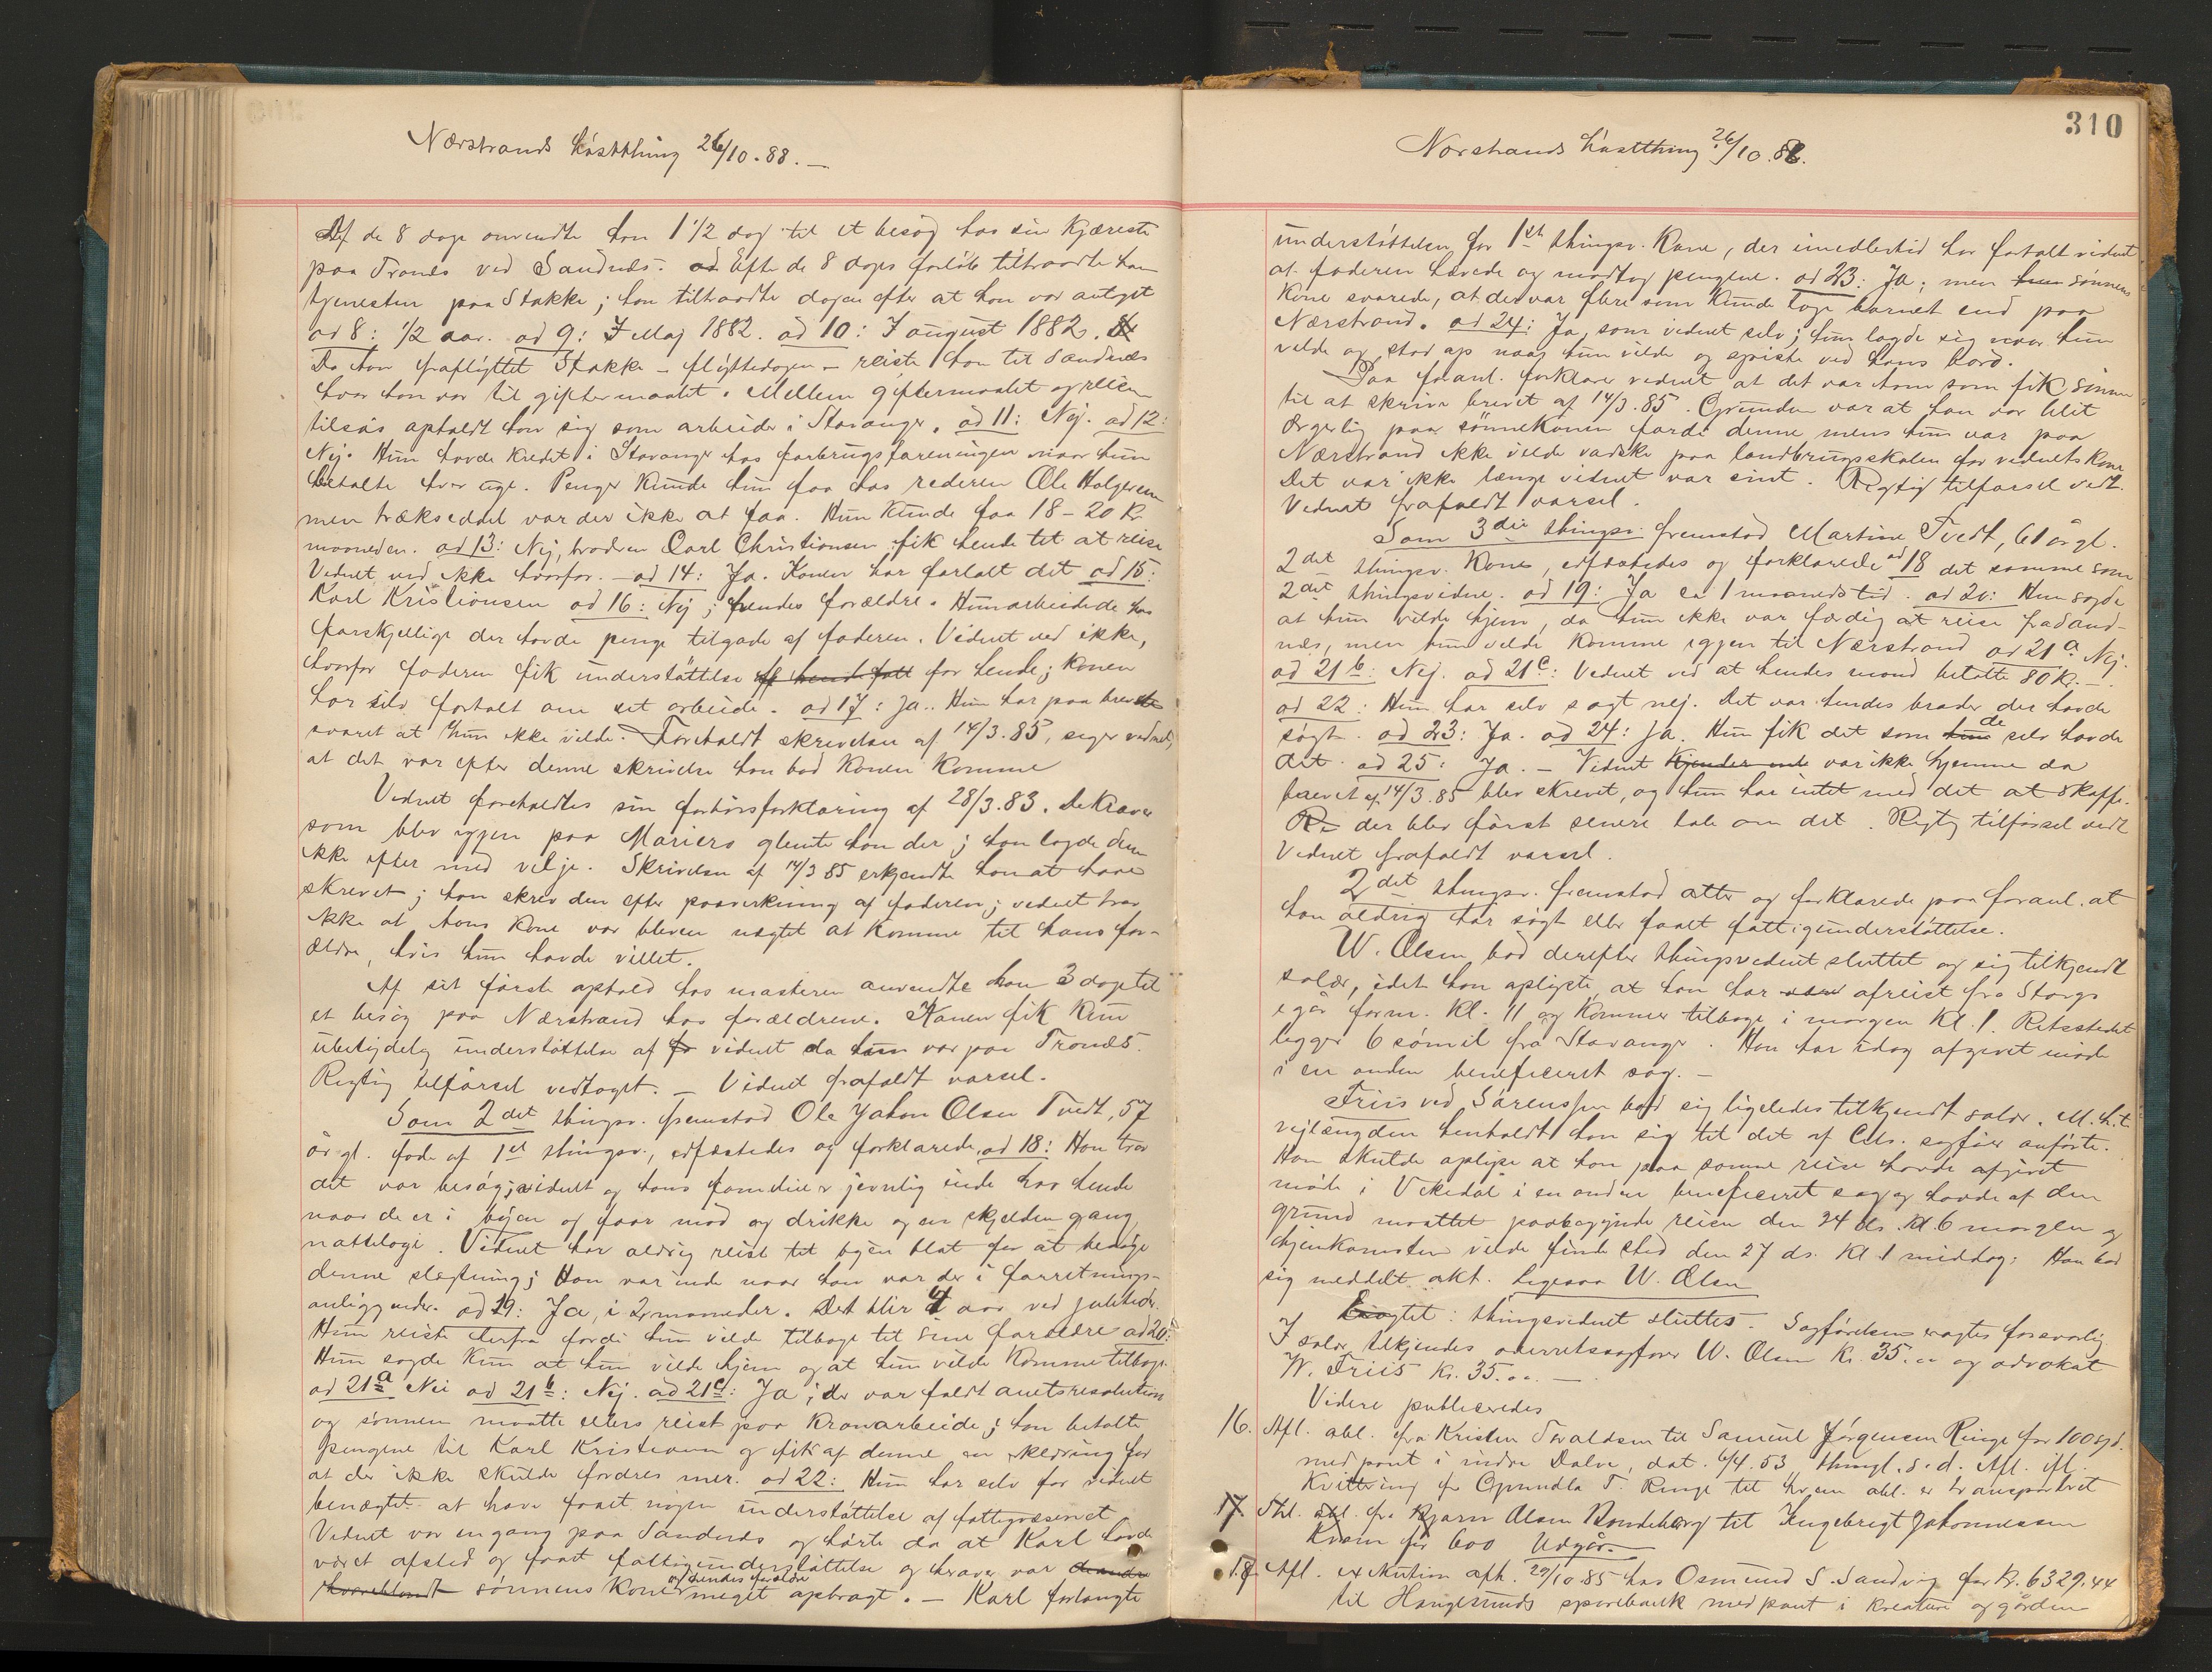 Nærstrands hóstthing 26/10.88. —
Af de 8 dage anvendte han 1 1/2 dag til et besög hos sin Kjæreste
paa Tronæs ved Sandnæs. ad Efter de 8 dages forlöb tiltraadte han
tjenesten paa Stakke; han tiltraadte dagen efter at han var antaget
ad 8: 1/2 aar. ad 9: I Maj 1882. ad 10: I august 1882.
Da han fraflyttet Stakke – flyttedagen – reiste han til Sandnæs
hvor han var til giftermaalet. Mellem giftermaalet og reisen
tilsøs opholdt han sig som arbeider i Stavanger. ad 11: Nej. ad 12:
Nej. Hun havde kredit i Stavanger hos forbrugsforeningen naar hun
betalte hver uge. Penger kunde hun faa hos rederen Ole Helgesen
men trækseddel var der ikke at faa. Hun kunde faa 18–20 Kr.
maaneden. ad 13: Nej, broderen Carl Christiansen fik hende til at reise
Vidnet ved ikke hvorfor. – ad 14: Ja. Konen har fortalt det ad 15:
Karl Kristiansen ad 16: Nej; hendes forældre. Hun arbeidede hos
forskjellige der havde penge tilgode af faderen. Vidnet ved ikke,
hvorfor faderen fik understöttelse for hende; konen
har selv fortalt om sit arbeide. ad 17: Ja. Hun har paa brevet
svaret at hun ikke vilde. Foreholdt skrivelsen af 14/3.85, siger vidnet,
at det var efter denne skrivelse han bad konen komme
Vidnet foreholdtes sin forhörsforklaring af 28/3.83. De klæder
som blev igjen paa Mariero glemte han der; han lagde dem
ikke efter med vilje. Skrivelsen af 14/3 85 erkjendte han at have
skrevet; han skrev den efter paavirkning af faderen; vidnet tror
ikke at hans kone var bleven nægtet at komme til hans for-
ældre, hvis hun havde villet.
Af sit förste ophold hos masteren anvendte han 3 dage til
et besög paa Nærstrand hos forældrene. Konen fik kun
ubetydelig understöttelse af vidnet da hun var paa Tronæs.
Rigtig tilförsel vedtaget. — Vidnet frafaldt varsel.
Som 2det thingsv. fremstod Ole Jakon Olsen Tvedt, 57
år gl. fader af 1st thingsv., edfæstedes og forklarede, ad 18: Han tror
det var besög; vidnet og hans familie er jevnlig inde hos hende
naar de er i byen og faar mad og drikke og en skjelden gang
nattelogi. Vidnet har aldrig reist til byen blot for at besöge
denne slægtning; Han var inde naar han var der i forretnings-
anliggender. ad 19: Ja, i 2 maaneder. Det blir 4 aar ved juletider.
Hun reiste derfra fordi hun vilde tilbage til sine forældre ad 20:
Hun sagde kun at hun vilde hjem og at hun vilde komme tilbage.
ad 21a Nei ad 21b: Nej. ad 21c: Ja; der var faldt amtsresolution
og sönnen maatte ellers reist paa kronarbeide; han betalte
pengene til Karl Kristiansen og fik af denne en erklæring for
at der ikke skulde fordres mer. ad 22: Hun har selv for vidnet
benægtet at have faaet nogen understöttelse af fattigvæsenet
Vidnet var engang paa Sandnæs og hörte da at Karl havde
været afsted og faaet fattigunderstöttelse og herover var
sönnens kone og hendes forældre meget opbragt. — Karl forlangte
310
Nærstrands hóstthing 26/10.88.
understöttelsen for 1st thingsv. Kone, der imedlertid har fortalt vidnet
at faderen hævede og modtog pengene. ad 23: Ja; men sönnens
kone svarede, at der var flere som kunde tage barnet end paa
Nærstrand. ad 24: Ja, som vidnet selv; hun lagde sig naar hun
vilde og stod op naar hun vilde og spiste ved hans bord.
Paa foranl. forklarer vidnet at det var ham som fik sönnen
til at skrive brevet af 14/3.85. Grunden var at han var blit
ærgerlig paa sönnekonen fordi denne mens hun var paa
Nærstrand ikke vilde vadske paa landbrugsskolen for vidnets kone
Det var ikke længe vidnet var sint. Rigtig tilförsel vedt.
Vidnet frafaldt varsel.
Som 3die thingsv. fremstod Martine Tvedt, 61 år gl.
2det thingsv. Kone, edfæstedes og forklarede ad 18 det samme som
2det thingsvidne. ad 19: Ja ca 1 maaneds tid. ad 20: Hun sagde
at hun vilde hjem, da hun ikke var færdig at reise fra Sand-
næs, men hun vilde komme igjen til Nærstrand ad 21a Nej.
ad 21b: Nej. ad 21c: Vidnet ved at hendes mand betalte 80 Kr. —
ad 22: Hun har selv sagt nej. Det var hendes broder der havde
sögt. ad 23: Ja. ad 24: Ja. Hun fik det som de selv havde
det. ad 25: Ja. — Vidnet var ikke hjemme da
brevet af 14/3.85 blev skrevet, og hun har intet med det at skaffe.
der blev först senere tale om det. Rigtig tilförsel vedt
Vidnet frafaldt varsel.
2det thingsv. fremstod atter og forklarede paa foranl. at
han aldrig har sögt eller faaet fattigunderstöttelse.
W. Olsen bad derefter thingsvidnet sluttet og sig tilkjendt
salær, idet han oplyste, at han har afreist fra Stavgr
igår form. Kl. 11 og kommer tilbage i morgen Kl. 1. Retsstedet
ligger 6 sömil fra Stavanger. Han har idag afgivet möde
i en anden beneficeret sag. —
Friis ved Sörenssen bad sig ligeledes tilkjendt salær. M. h. t.
vejlængden henholdt han sig til det af Cits. sagförer anförte.
Han skulde oplyse at han paa samme reise havde afgivet
möde i Vikedal i en anden beneficeret sag og havde af den
grund maattet paabegynde reisen den 24 ds. Kl. 6 morgen og
hjemkomsten vilde finde sted den 27 ds. Kl. 1 middag. Han bad
sig meddelt akt. Ligesaa W. Olsen
Eragtet: thingsvidnet sluttes. Sagförelsen eragtes forsvarlig
I salær tilkjendes overretssagförer W. Olsen Kr. 35.00 og advokat
W. Friis Kr. 35.00. —
Videre publiceredes
16. Afl. obl. fra Kristen Toraldsen til Samuel Jörgensen Ringe for 100 spd.
med pant i indre Dalve, dat. 6/4.53 thingl. s. d. Afl. ifl.
Kvittering fra Gunnilda T. Ringe til hvem obl. er transporteret
17. Skl. obl. fra Bjarn Olsen Bondeberg til Ingebregt Johannessen
Kvam for 600 Udgår. —
18. Afl. exekution afh. 29/10.85 hos Osmund S. Sandvig for Kr. 6329.44
til Haugesunds sparebank med pant i kreature og gården